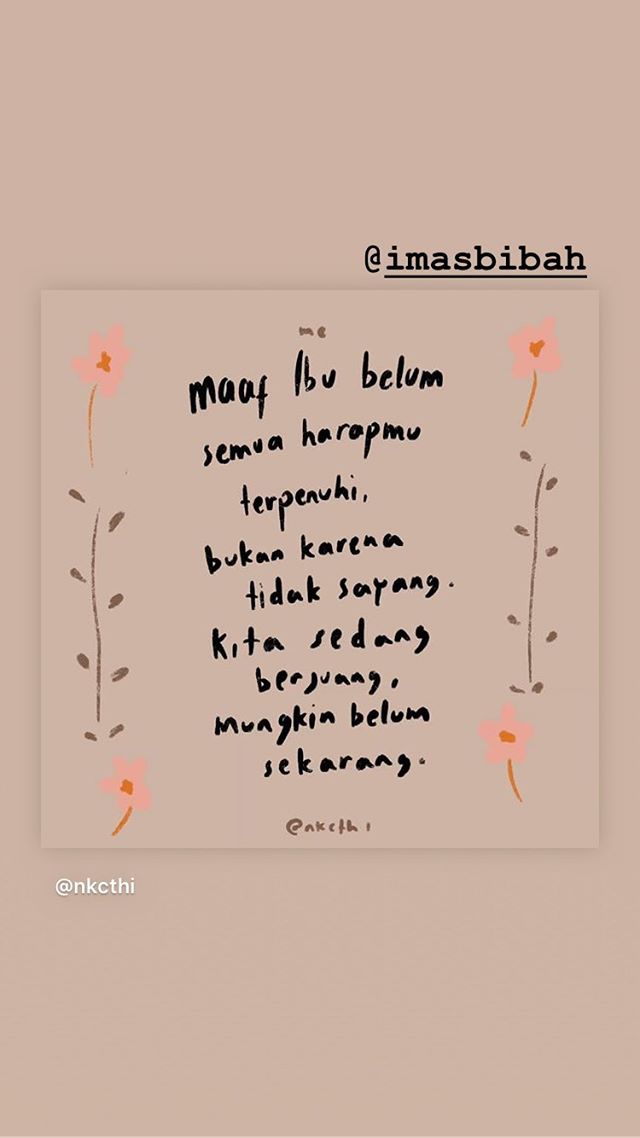 @imasbibah
mc
maaf Ibu belum
semua harapmu
terpenuhi,
bukan karena
tidak sayang.
Kita sedang
berjuang,
mungkin belum
sekarang.
@nkcthi
@nkcthi